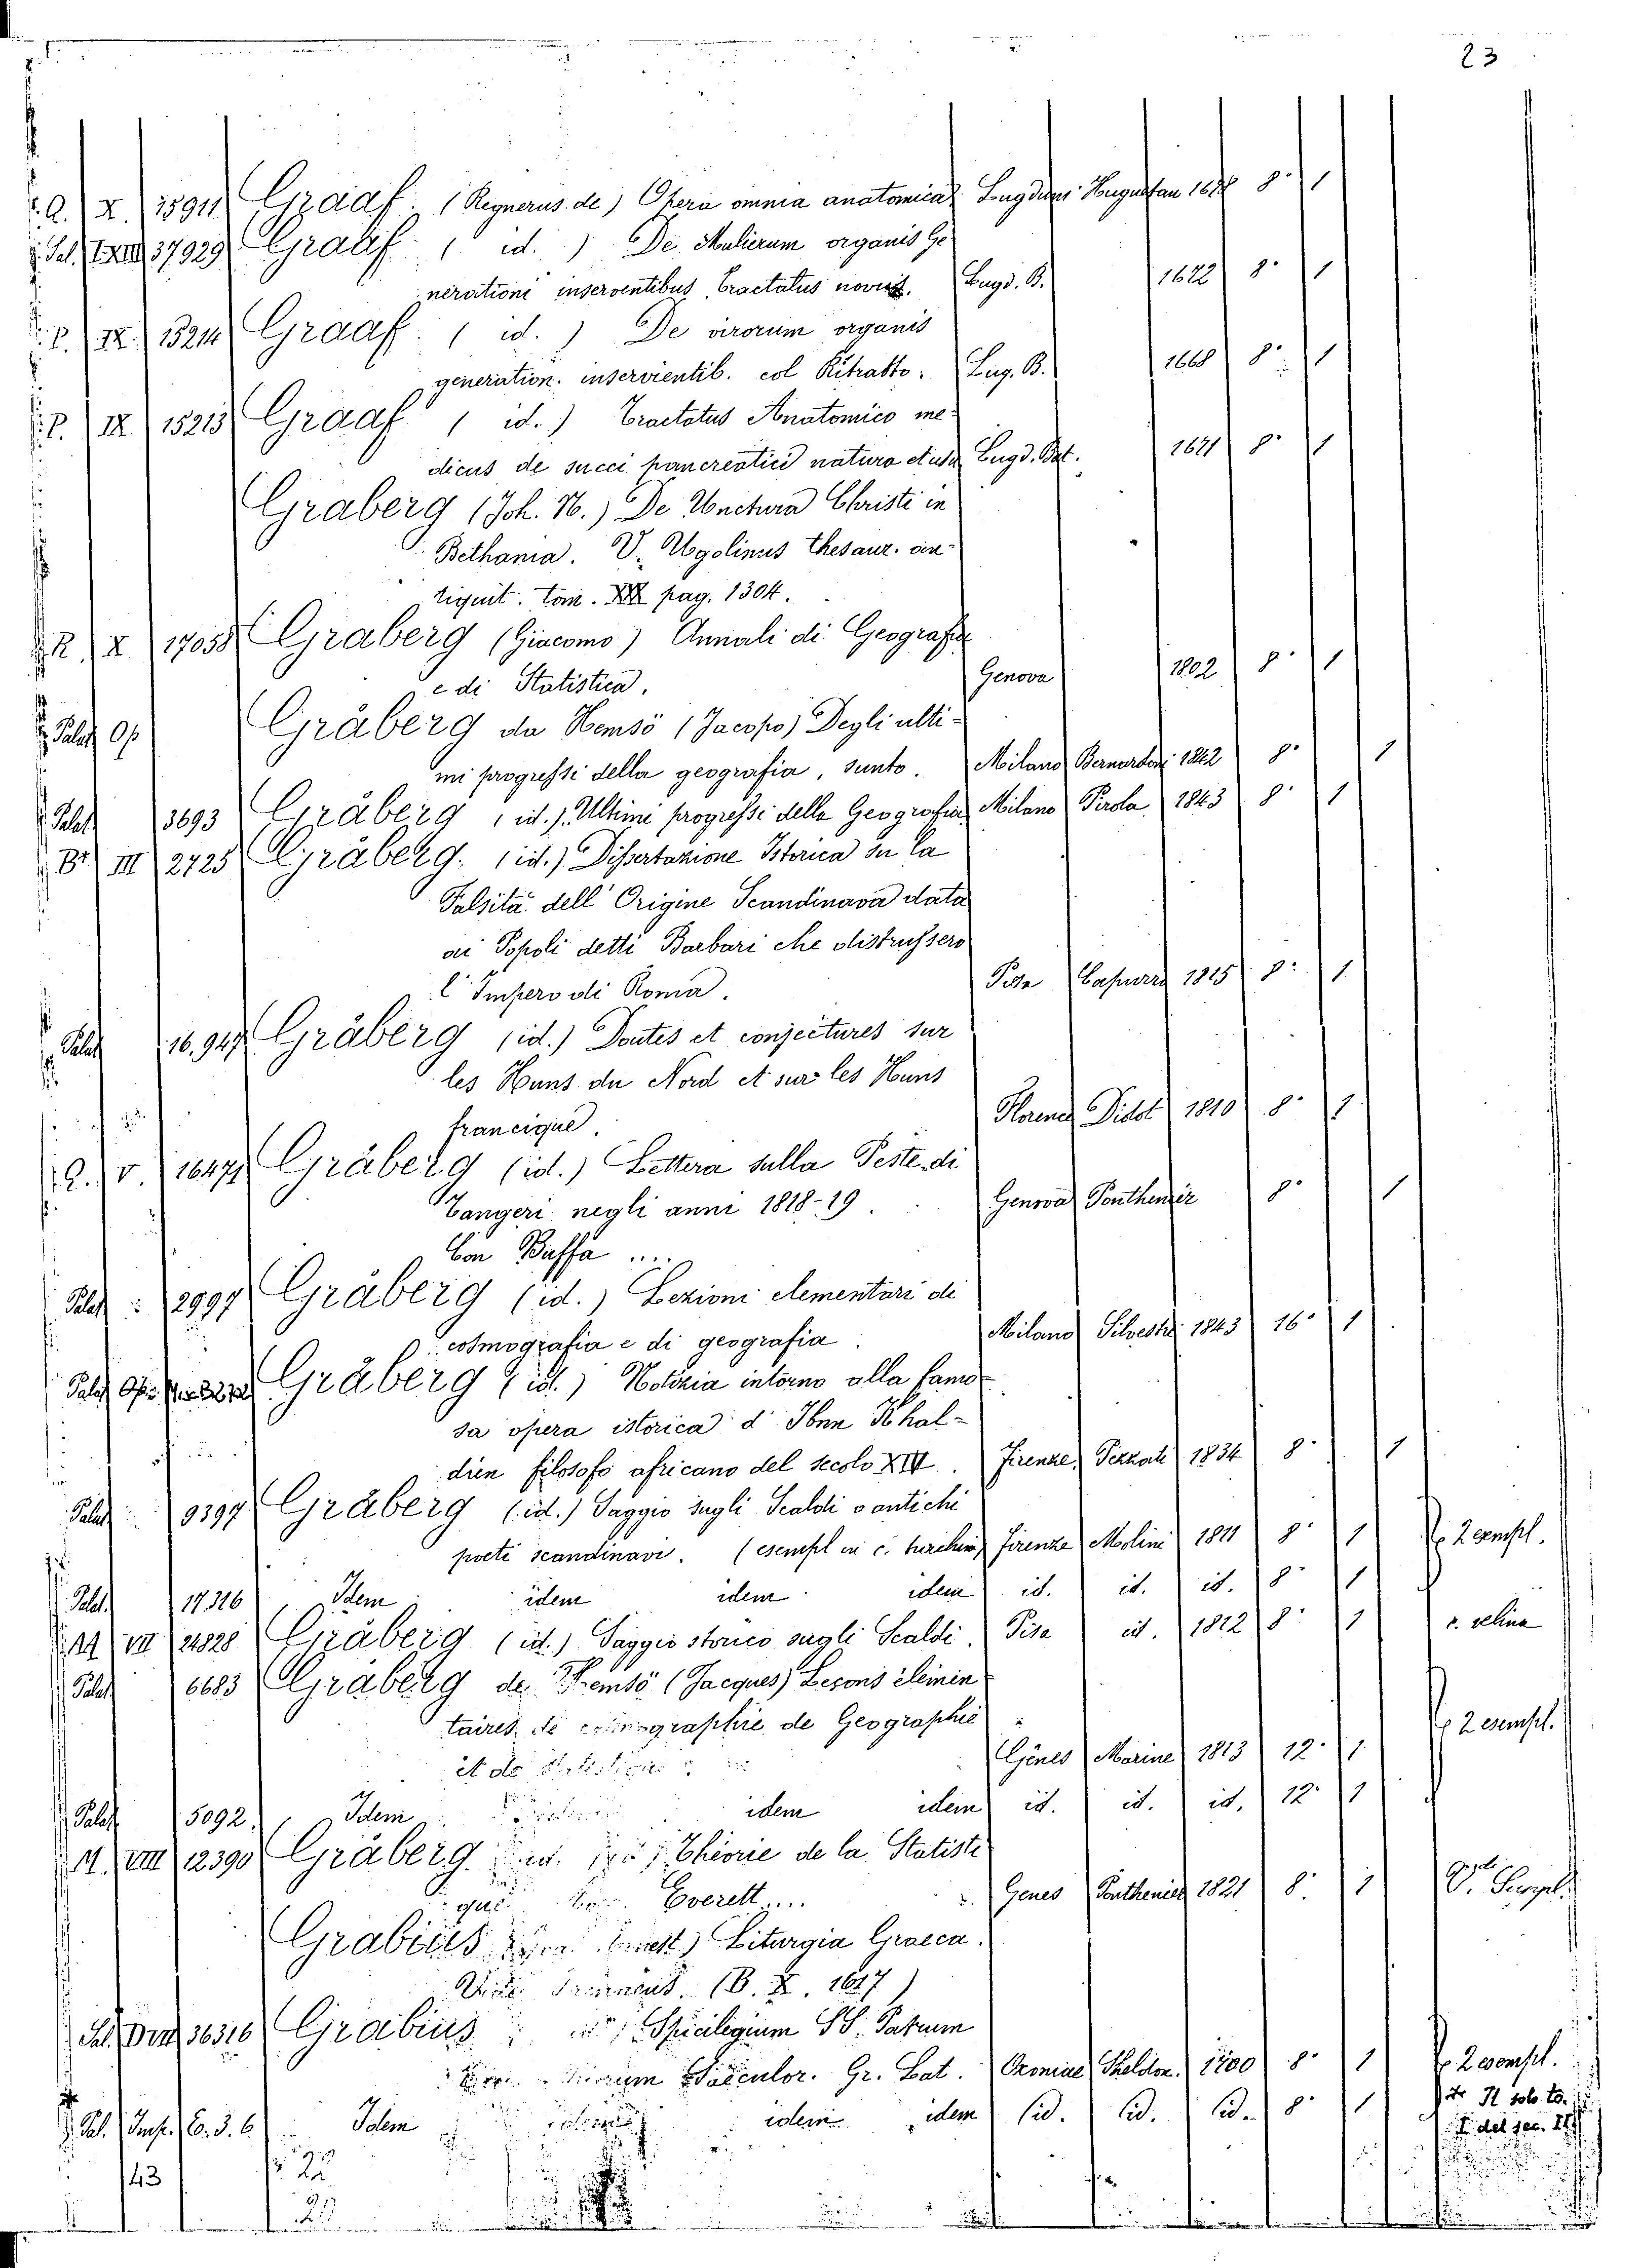 23
Q. X 15911 Graaf. (Regnerus de) Opera omnia anatomica Lugduni Huguetan 8° 1
37929 Graaf ( id. ) De Mulierum organis Ge-
nerationi inserventibus, Tractatus novus. Lugd. B. 1672 8° 1
P. IX. 15214 Graaf. ( id. ) De virorum organis
generation. inservientib. col Ritratto. Lug. B. 1668 8° 1
P. IX 15213 Graaf ( id. ) Tractatus Anatomico me-
dicus de succi pancreatici natura et usu Lugd. Bat. 1671 8° 1
Graberg (Joh. N.) De Unctura Christi in
Bethania. V. Ugolinus Thesaur. an-
tiquit. tom. pag. 1304.
R X 17058 Graberg (Giacomo) Annali di Geografia
e di Statistica. Genova 1802 8° 1
Palat Op Gråberg da Hemsö (Jacopo) Degli ulti-
mi progressi della geografia, sunto. Milano Bernardoni 1842 8° 1
Palat 3693 Gråberg (id.) Ultimi progressi della Geografia Milano Pirola 1843 8° 1
B III 2725 Gråberg. (id.) Dissertazione Istorica su la
Falsità dell' Origine Scandinava data
ai Popoli detti Barbari che distrussero
l' Impero di Roma. Pisa Capurro 1815 8° 1
Palat 16.947 Gråberg (id.) Doutes et conjectures sur
les Huns du Nord et sur les Huns
francique. Florence Didot 1810 8° 1
Q. V 16471 Gråberg (id.) Lettera sulla Peste di
Tangeri negli anni 1818-19. Genova Ponthenier 8° 1
Con Buffa ...
Palat 2997 Gråberg (id.) Lezioni elementari di
cosmografia e di geografia. Milano Silvestri 1843 16° 1
Palat Gråberg (id.) Notizia intorno alla famo-
sa opera istorica d' Ibnn Khal-
dien filosofo africano del secolo XIV. Firenze Pezzati 1834 8° 1
Palat 9397 Gråberg (id.) Saggio sugli Scaldi o antichi
poeti scandinavi. (esempl in c. turchina) Firenze Molini 1811 8° 1 2 esempl.
Palat. 17316 Idem idem idem idem id. id. id. 8° 1
VII 21828 Gråberg (id.) Saggio storico sugli Scaldi. Pisa id. 1812 8° 1 c. velina
Palat 6683 Gråberg de Hemsö (Jacques) Leçons élémen
taires de cosmographie, de Geographie
et de Gênes Marine 1813 12° 1 2 esempl.
Palat 5092 Idem idem idem id. id. id. 12° 1
VIII 12390 Gråberg. Théorie de la Statisti
que Everett.... Genes Ponthenier 1821 8° 1
Grabius Liturgia Graeca.
(B. X. 1617)
36316 Grabius Spicilegium SS. Patrum
Saeculor. Gr. Lat. Oxoniae Sheldon. 1700 8° 1 2 esempl.
Pal. Imp. C. 3. 6. Idem idem idem id. id. id. 8° 1
143